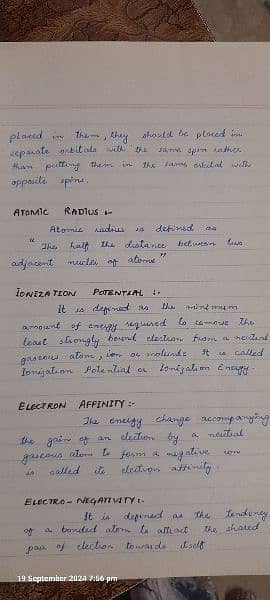 placed in them, they should be placed in
separate orbitals with the same spin rather
than putting them in the same orbital with
opposite spins.
ATOMIC RADIUS :-
Atomic radius is defined as
" The half the distance between two
adjacent nuclei of atoms "
IONIZATION POTENTIAL :-
It is defined as the minimum
amount of energy required to remove the
least strongly bound electron from a neutral
gaseous atom, ion or molecule It is called
Ionization Potential or Ionization Energy.
ELECTRON AFFINITY :-
The energy change accompanying
the gain of an electron by a neutral
gaseous atom to form a negative ion
is called its electron affinity.
ELECTRO-NEGATIVITY :-
It is defined as the tendency
of a bonded atom to attract the shared
pair of electron towards itself
19 September 2024 7:56 pm